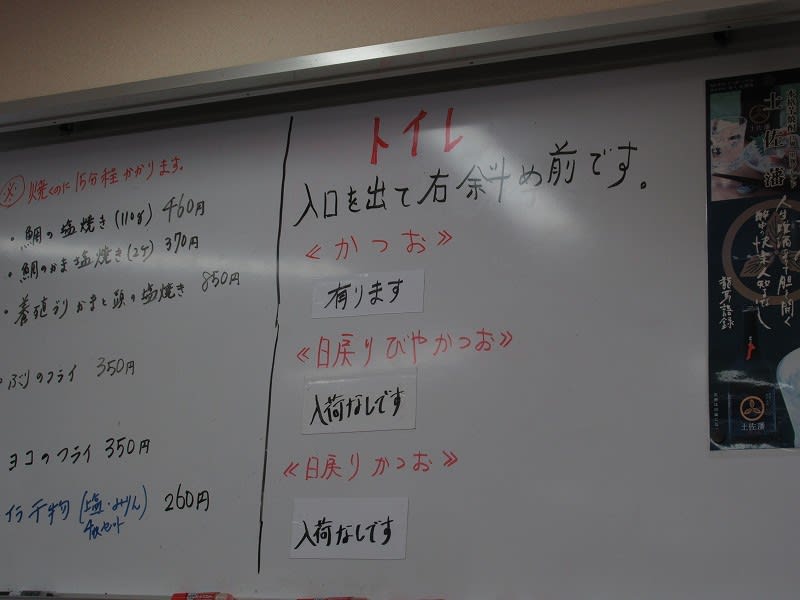 ※ 焼くのに15分程かかります。
・鯛の塩焼き(110g) 460円
・鯛のかま塩焼き(2ケ) 370円
・養殖ぶりかまと頭の塩焼き 850円
ぶりのフライ 350円
ヨコのフライ 350円
イラ干物(塩・みりん) 260円
4枚セット
トイレ
入口を出て右斜め前です。
《かつお》
有ります
《日戻りびやかつお》
入荷なしです
《日戻りかつお》
入荷なしです
土佐藩
龍馬語録
土佐藩